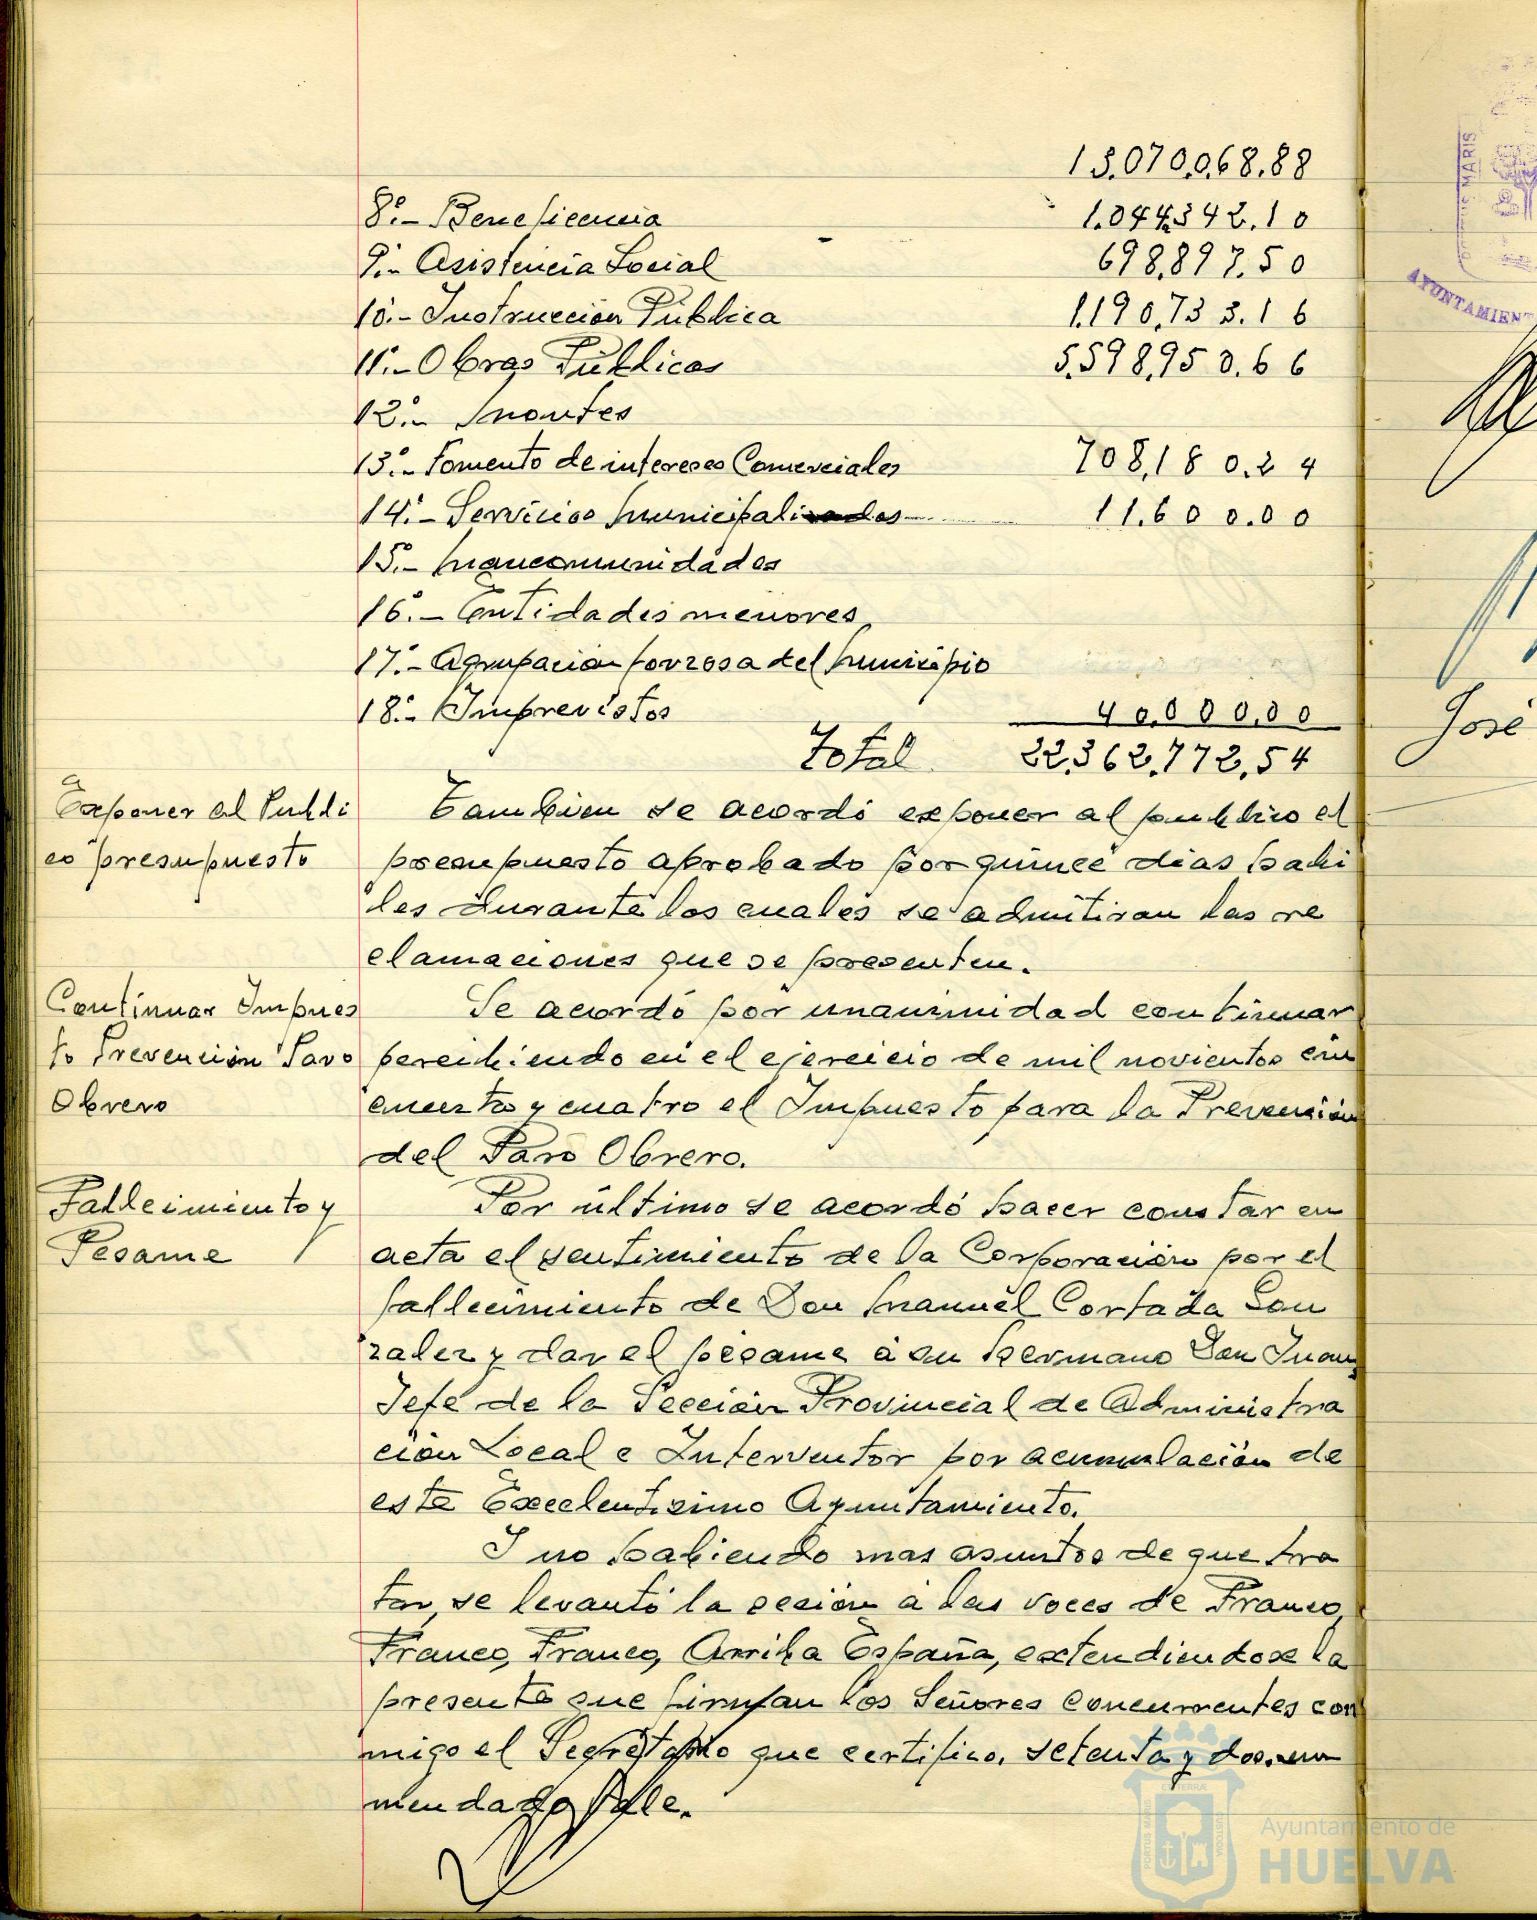 13.070.068.88
8º.- Beneficencia 1.044.342.10
9º.- Asistencia Social 698.897.50
10º.- Instruccion Pública 1.190.733.16
11º.- Obras Públicas 5.598.950.66
12º.- Montes
13º.- Fomento de intereses Comerciales 708.180.24
14º.- Servicios Municipalizados 11.600.00
15º.- Mancomunidades
16º.- Entidades menores
17º.- Agrupación forzosa del Municipio
18º.- Imprevistos 40.000.00
Total 22.362.772.54
Exponer al Públi
co presupuesto
Tambien se acordó exponer al publico el
presupuesto aprobado por quince dias habi
les durante los cuales se admitiran las re
clamaciones que se presenten.
Continuar Impues
to Prevención Paro
Obrero
Se acordó por unanimidad continuar
percibiendo en el ejercicio de mil novientos cin
cuenta y cuatro el Impuesto para la Prevención
del Paro Obrero.
Fallecimiento y
Pesame
Por último se acordó hacer constar en
acta el sentimiento de la Corporación por el
fallecimiento de Don Manuel Cortada Gon
zalez y dar el pésame á su hermano Don Juan,
Jefe de la Sección Provincial de Administra
ción Local e Interventor por acumulación de
este Excelentisimo Ayuntamiento.
Y no habiendo mas asuntos de que tra
tar, se levantó la sesión a las voces de Franco,
Franco, Franco, Arriba España, extendiendose la
presente que firman los Señores concurrentes con
migo el Secretario que certifico. setenta y dos. en
mendado Vale.
PORTUS MARIS
AYUNTAMIENT
José
Ayuntamiento de
HUELVA